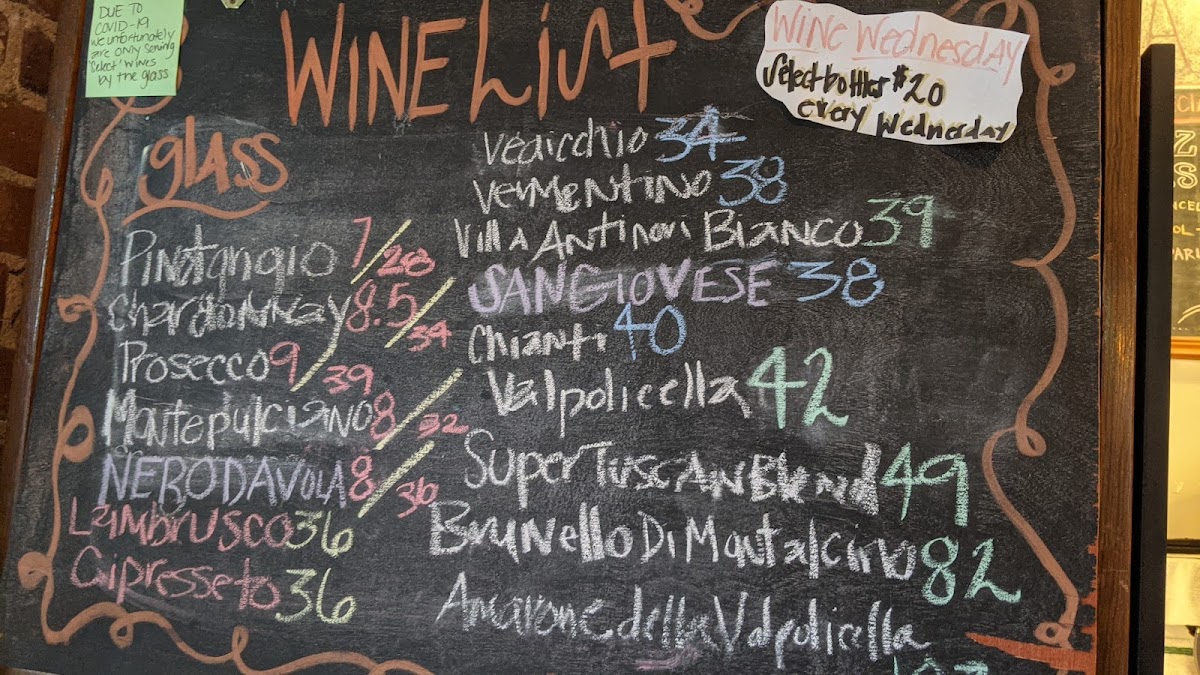 DUE TO
COVID-19
we unfortunately
are only serving
'select' wines
by the glass
WINE List
Wine Wednesday
Select bottles $20
every Wednesday
glass
Pinotgrigio 7/28
Chardonnay 8.5/34
Prosecco 9/39
Montepulciano 8/32
NERO DAVOLA 8/36
Lambrusco 36
Cipresseto 36
Vedicchio 34
Vermentino 38
Villa Antinori Bianco 39
SANGIOVESE 38
Chianti 40
Valpolicella 42
Super Tuscan Blend 49
Brunello Di Montalcino 82
Amarone della Valpolicella